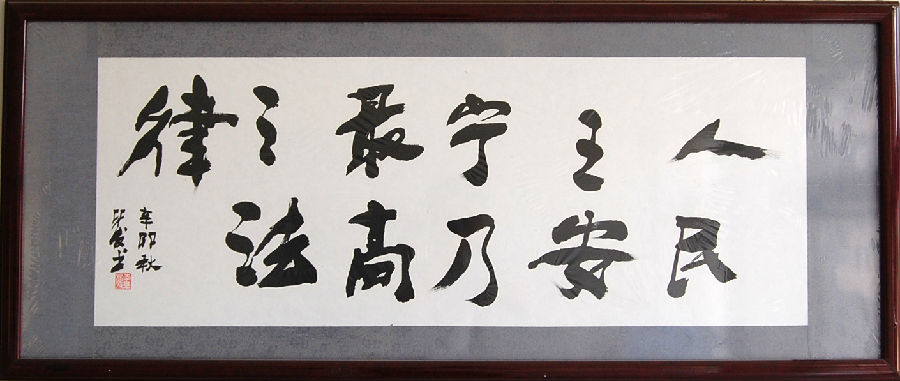 人民
之安
宁乃
最高
之法
律
辛卯秋